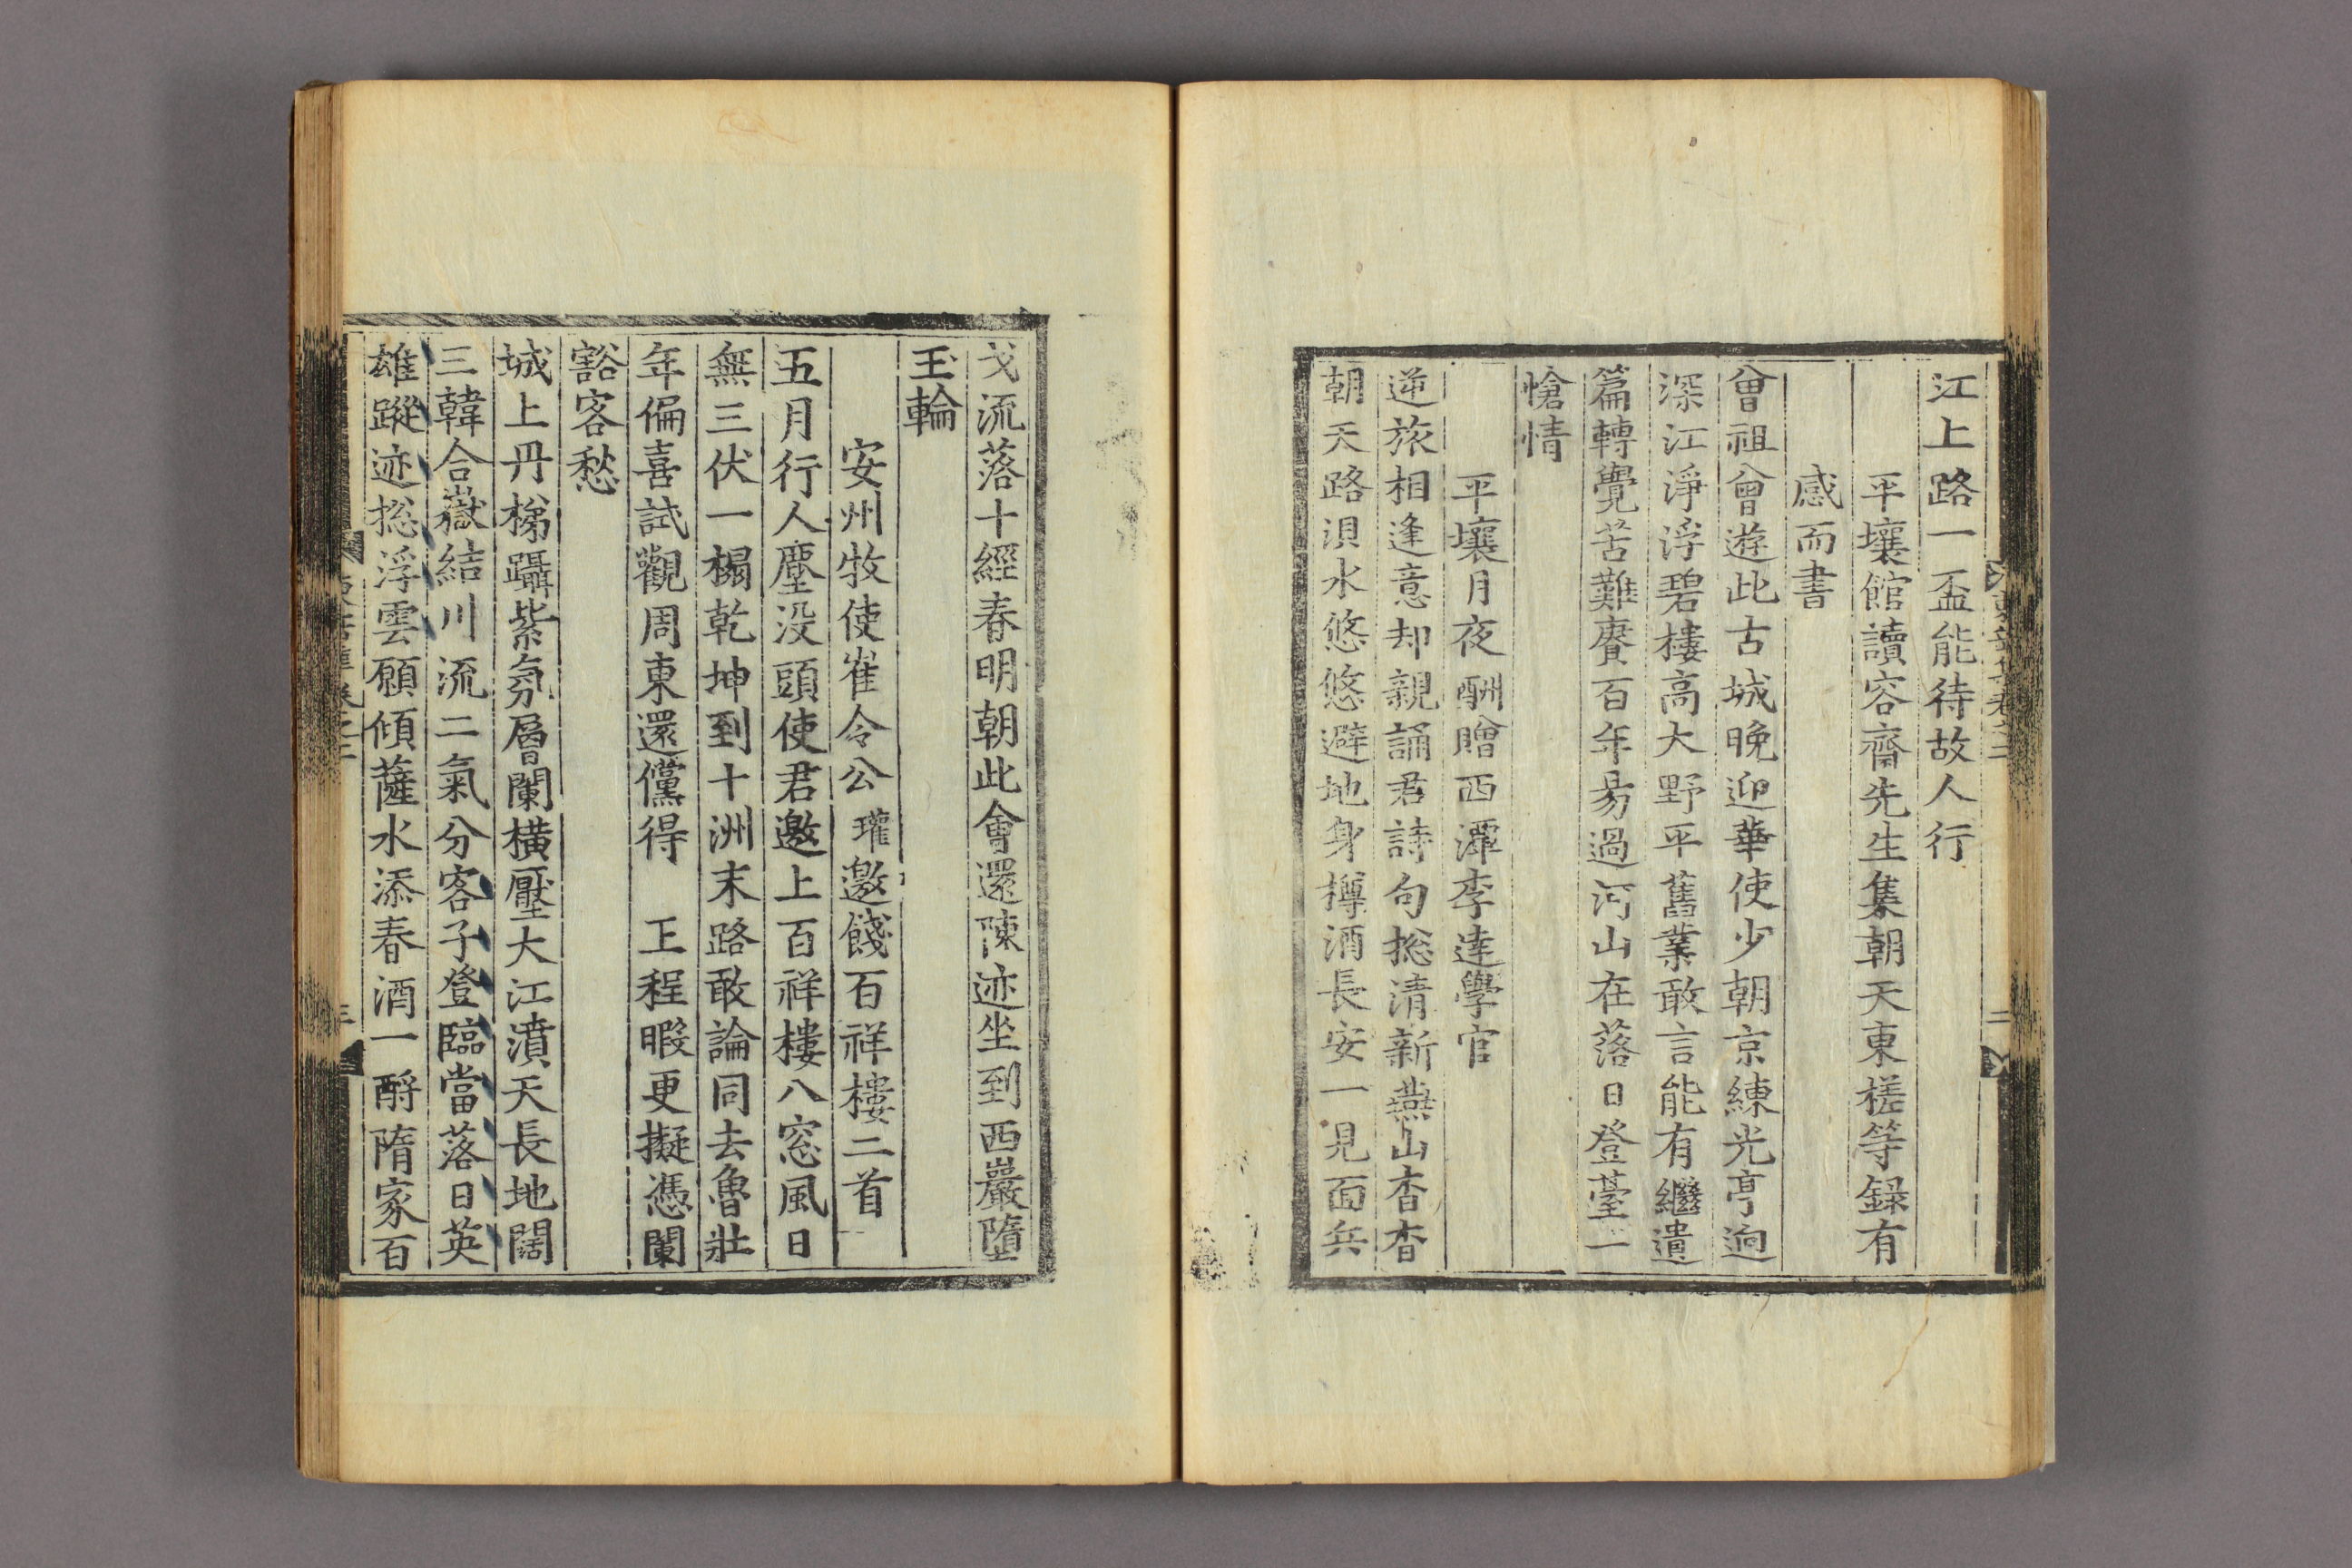 江上路一盃能待故人行
平壤館讀容齋先生集朝天東槎等録有
感而書
曾祖曾遊此古城晚迎華使少朝京練光亭逈
深江淨浮碧樓高大野平舊業敢言能有繼遺
篇轉覺苦難賡百年昜過河山在落日登臺一
愴情
平壤月夜酬贈西潭李達學官
逆旅相逢意却親誦君詩句捴清新燕山杳杳
朝天路浿水悠悠避地身樽酒長安一見面兵
戈流落十經春明朝此會還陳迹坐到西巖墮
玉輪
安州牧使崔令公瓘邀餞百祥樓二首
五月行人塵没頭使君邀上百祥樓八窓風日
無三伏一榻乾坤到十洲末路敢論同去魯壯
年偏喜試觀周東還儻得 王程暇更擬憑闌
豁客愁
城上丹梯躡紫氛層闌橫壓大江濆天長地闊
三韓合嶽結川流二氣分客子登臨當落日英
雄蹤迹捴浮雲願傾薩水添春酒一酹隋家百